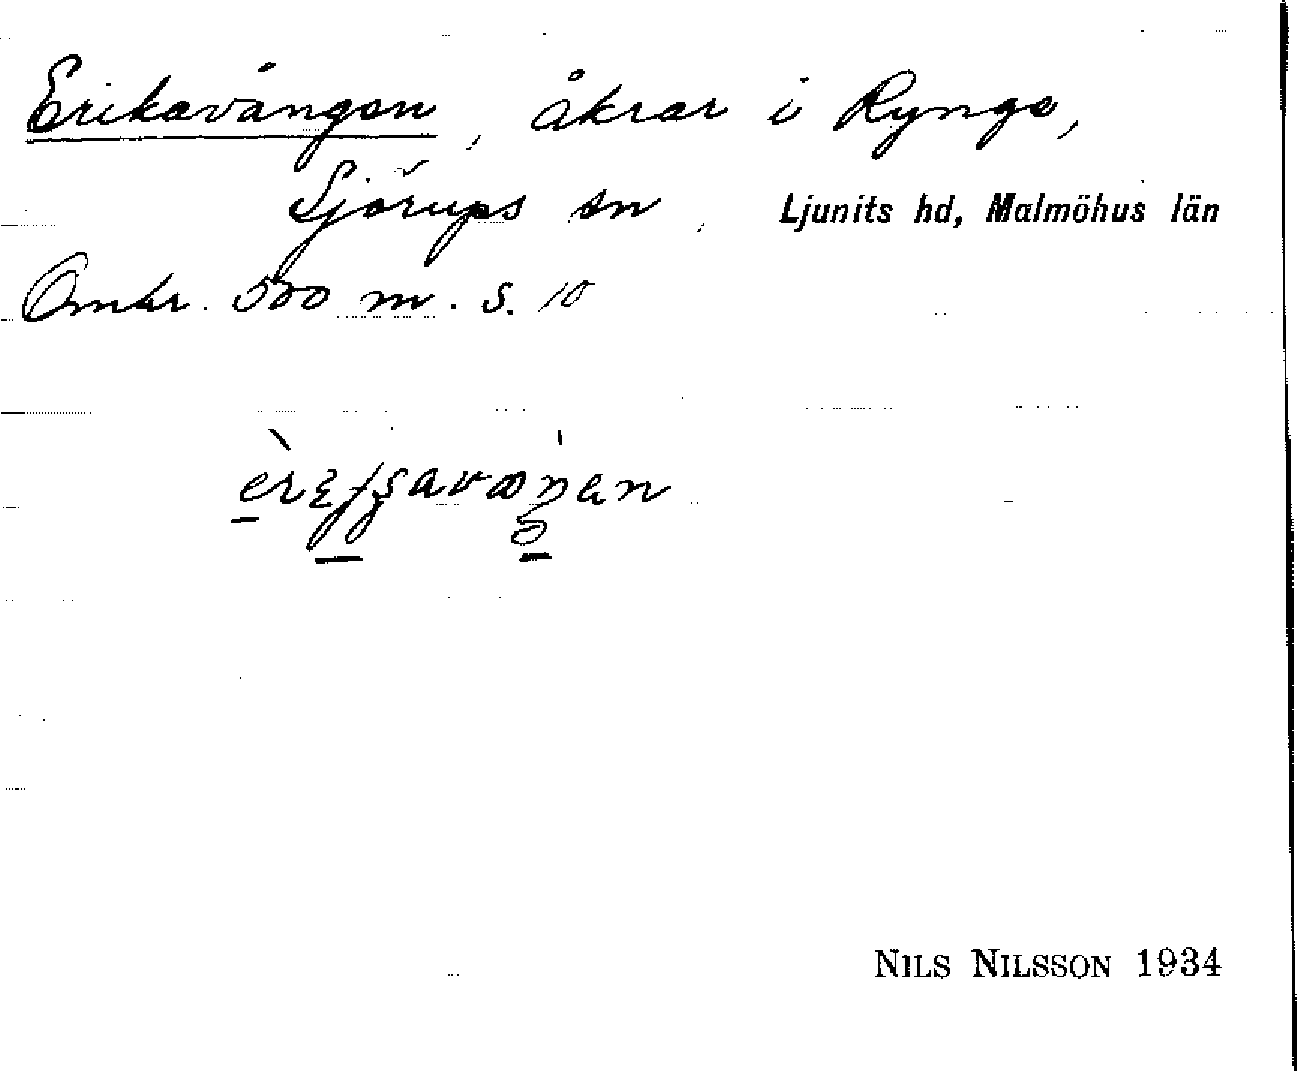 Erikavången, åkrar i Rynge,
Sjörups sn, Ljunits hd, Malmöhus län
Omkr. 500 m. S. 10
NILS NILSSON 1934